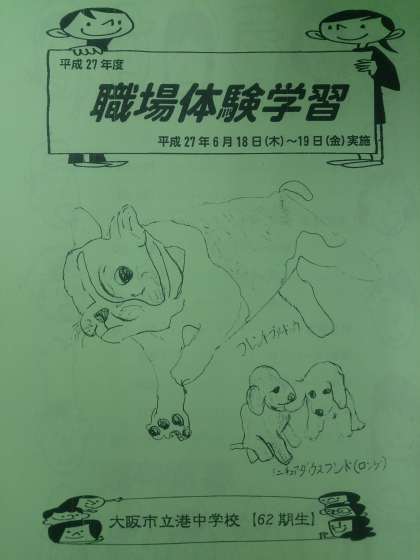 平成27年度
職場体験学習
平成27年6月18日(木)～19日(金)実施
フレンチブルドック
ミニチュアダックスフンド(ロング)
大阪市立港中学校 【62期生】